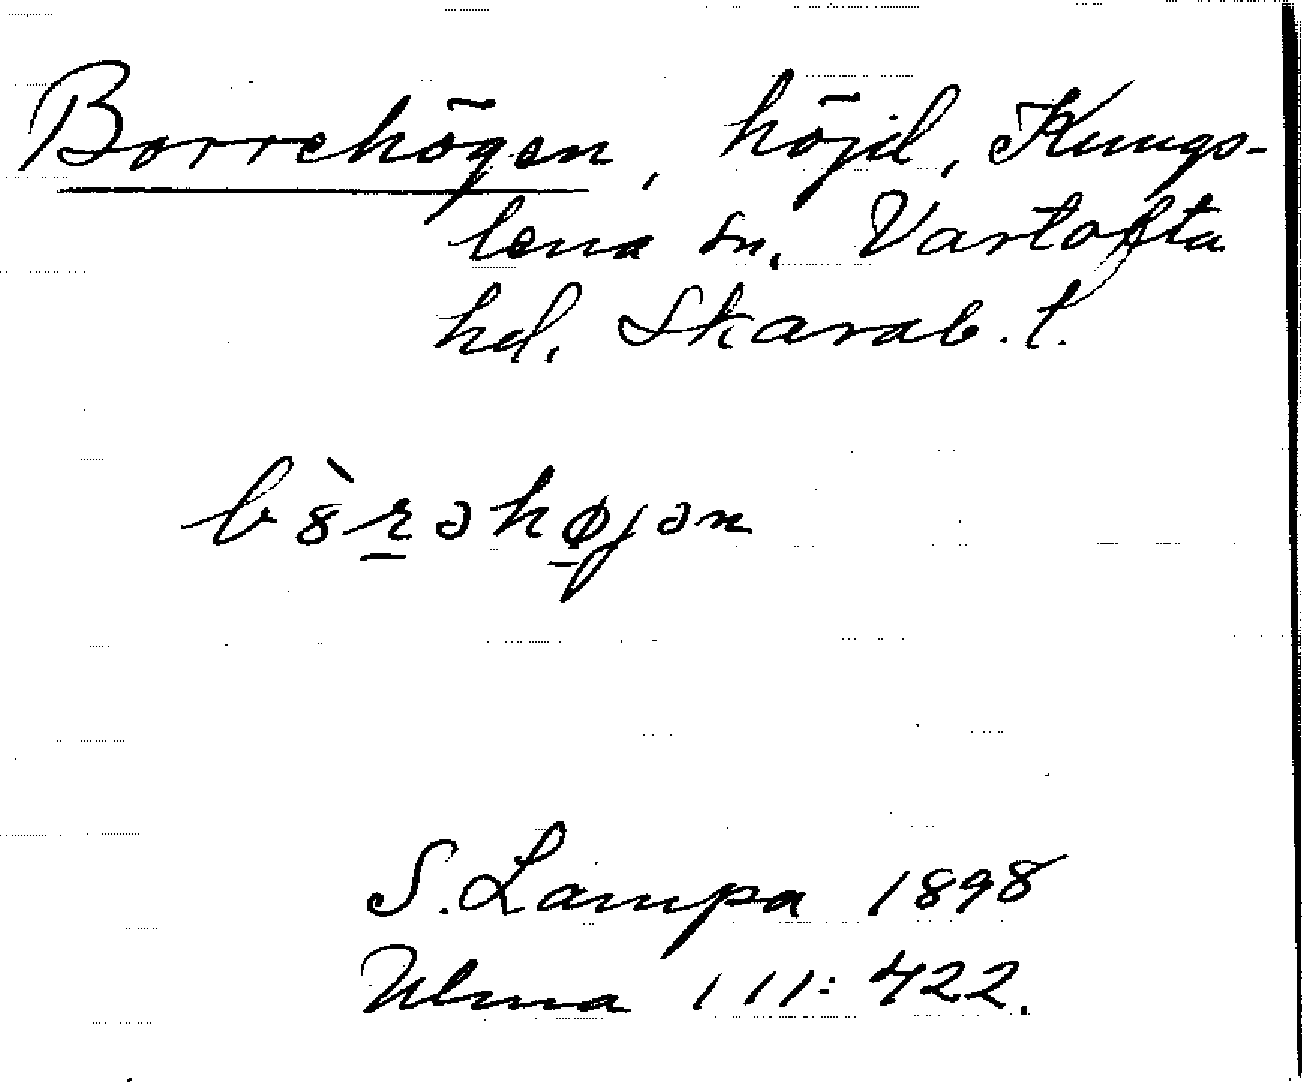 Borrehögen, höjd, Kungs-
lena sn, Vartofta
hd, Skarab. l.
b8̀r̠əhø̠jən
S. Lampa 1898
Ulma 111:422.